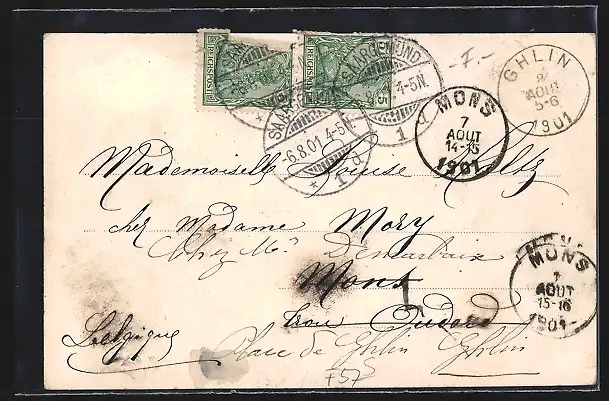 REICHSPOST
REICHSPOST
5
SAARGEMÜND
-6.8.01.4-5N.
* 1 d
SAARGEMÜND
4-5N.
1 d
- I. -
GHLIN
8
AOUT
5-6
1901
MONS
7
AOUT
14-15
1901
Mademoiselle Louise
chez Madame Mory
Chez Mr Demarbaix
Mons
1
MONS
7
AOUT
15-16
1901
Trou Oudard
Belgique
Place de Ghlin Ghlin
+57